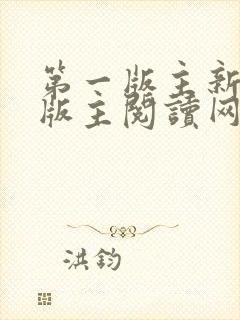 第一版主新
版主阅讀网
洪鈞